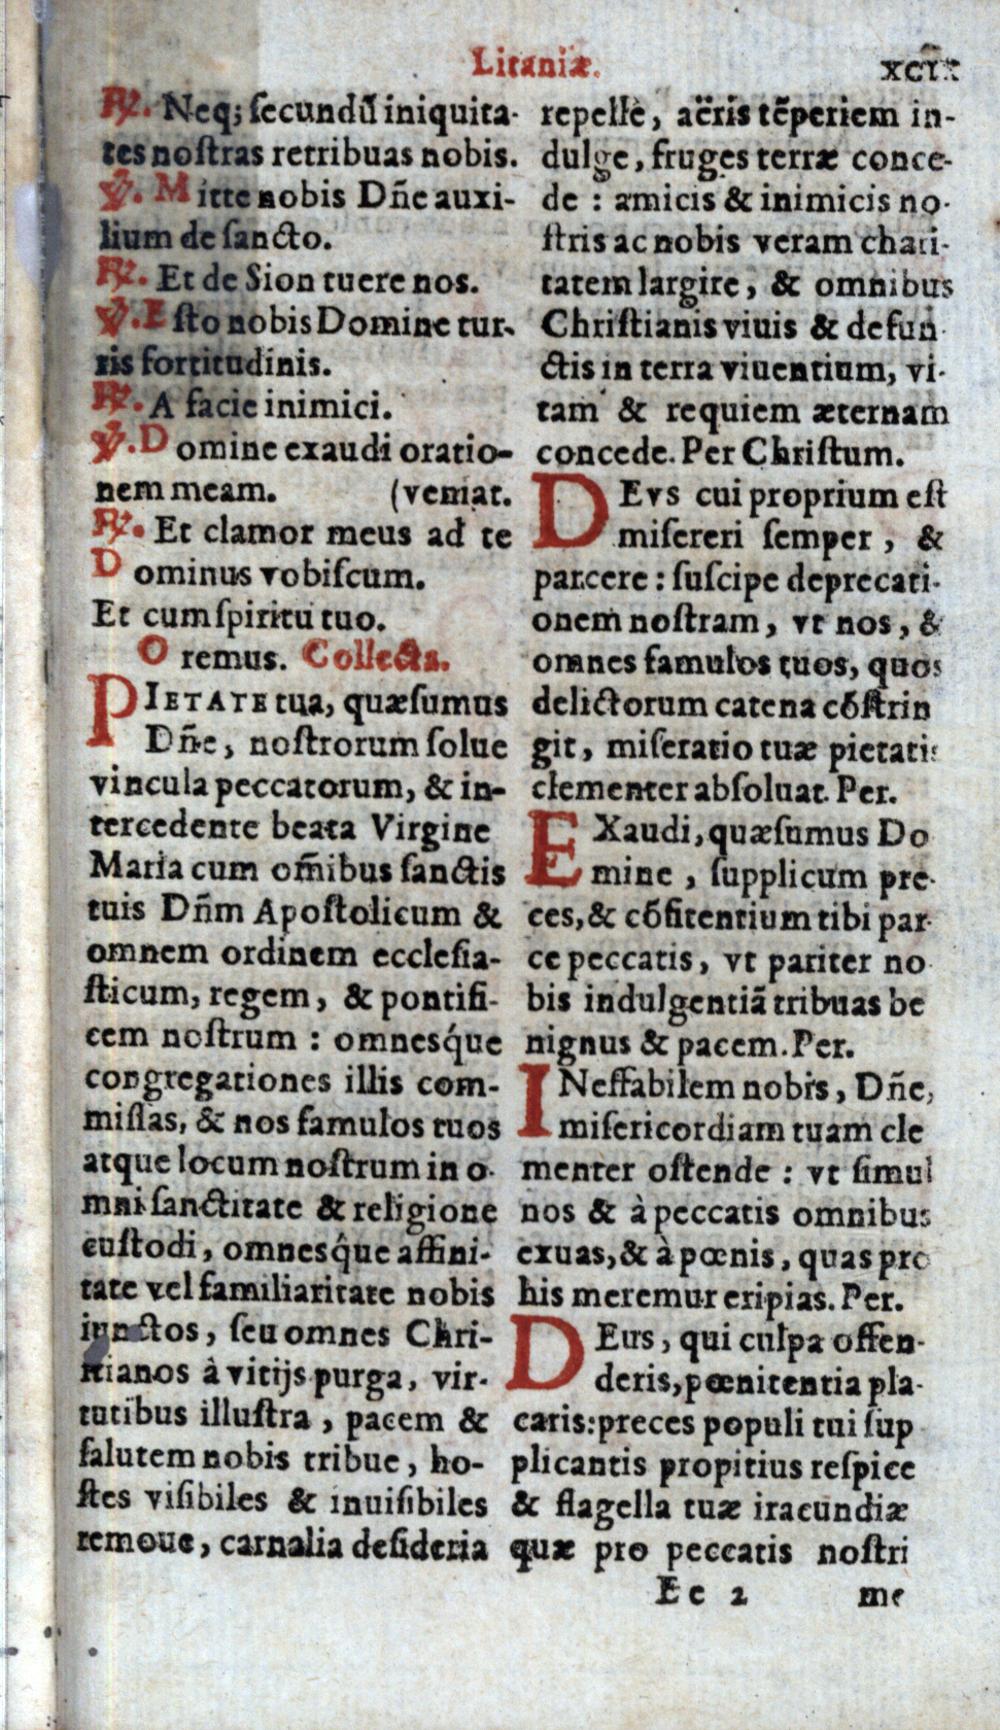 Litaniæ.
XCIX
℟. Neq; ſecundū iniquita-
tes noſtras retribuas nobis.
℣. Mitte nobis Dñe auxi-
lium de ſancto.
℟. Et de Sion tuere nos.
℣. Eſto nobis Domine tur-
ris fortitudinis.
℟. A facie inimici.
℣. Domine exaudi oratio-
nem meam. (veniat.
℟. Et clamor meus ad te
Dominus vobiſcum.
Et cum ſpiritu tuo.
Oremus. Collecta.
PIETATE tua, quæſumus
Dñe, noſtrorum ſolue
vincula peccatorum, & in-
tercedente beata Virgine
Maria cum om̃ibus ſanctis
tuis Dñm Apoſtolicum &
omnem ordinem eccleſia-
ſticum, regem, & pontifi-
cem noſtrum : omneſq́ue
congregationes illis com-
miſſas, & nos famulos tuos
atque locum noſtrum in o-
mni ſanctitate & religione
cuſtodi, omneſq̂ue affini-
tate vel familiaritate nobis
iunctos, ſeu omnes Chri-
ſtianos à vitijs purga, vir-
tutibus illuſtra, pacem &
ſalutem nobis tribue, ho-
ſtes viſibiles & inuiſibiles
remoue, carnalia deſideria
repelle, aëris tẽperiem in-
dulge, fruges terræ conce-
de : amicis & inimicis no-
ſtris ac nobis veram chari-
tatem largire, & omnibus
Chriſtianis viuis & defun-
ctis in terra viuentium, vi-
tam & requiem æternam
concede. Per Chriſtum.
DEvs cui proprium eſt
miſereri ſemper, &
parcere : ſuſcipe deprecati-
onem noſtram, vt nos, &
omnes famulos tuos, quos
delictorum catena cōſtrin
git, miſeratio tuæ pietatis
clementer abſoluat. Per.
EXaudi, quæſumus Do
mine, ſupplicum pre-
ces, & cōfitentium tibi par-
ce peccatis, vt pariter no
bis indulgentiā tribuas be
nignus & pacem. Per.
INeffabilem nobis, Dñe,
miſericordiam tuam cle
menter oſtende : vt ſimul
nos & à peccatis omnibus
exuas, & à pœnis, quas pro
his meremur eripias. Per.
DEus, qui culpa offen-
deris, pœnitentia pla-
caris: preces populi tui ſup
plicantis propitius reſpice
& flagella tuæ iracundiæ
quæ pro peccatis noſtri
Ee 2 me